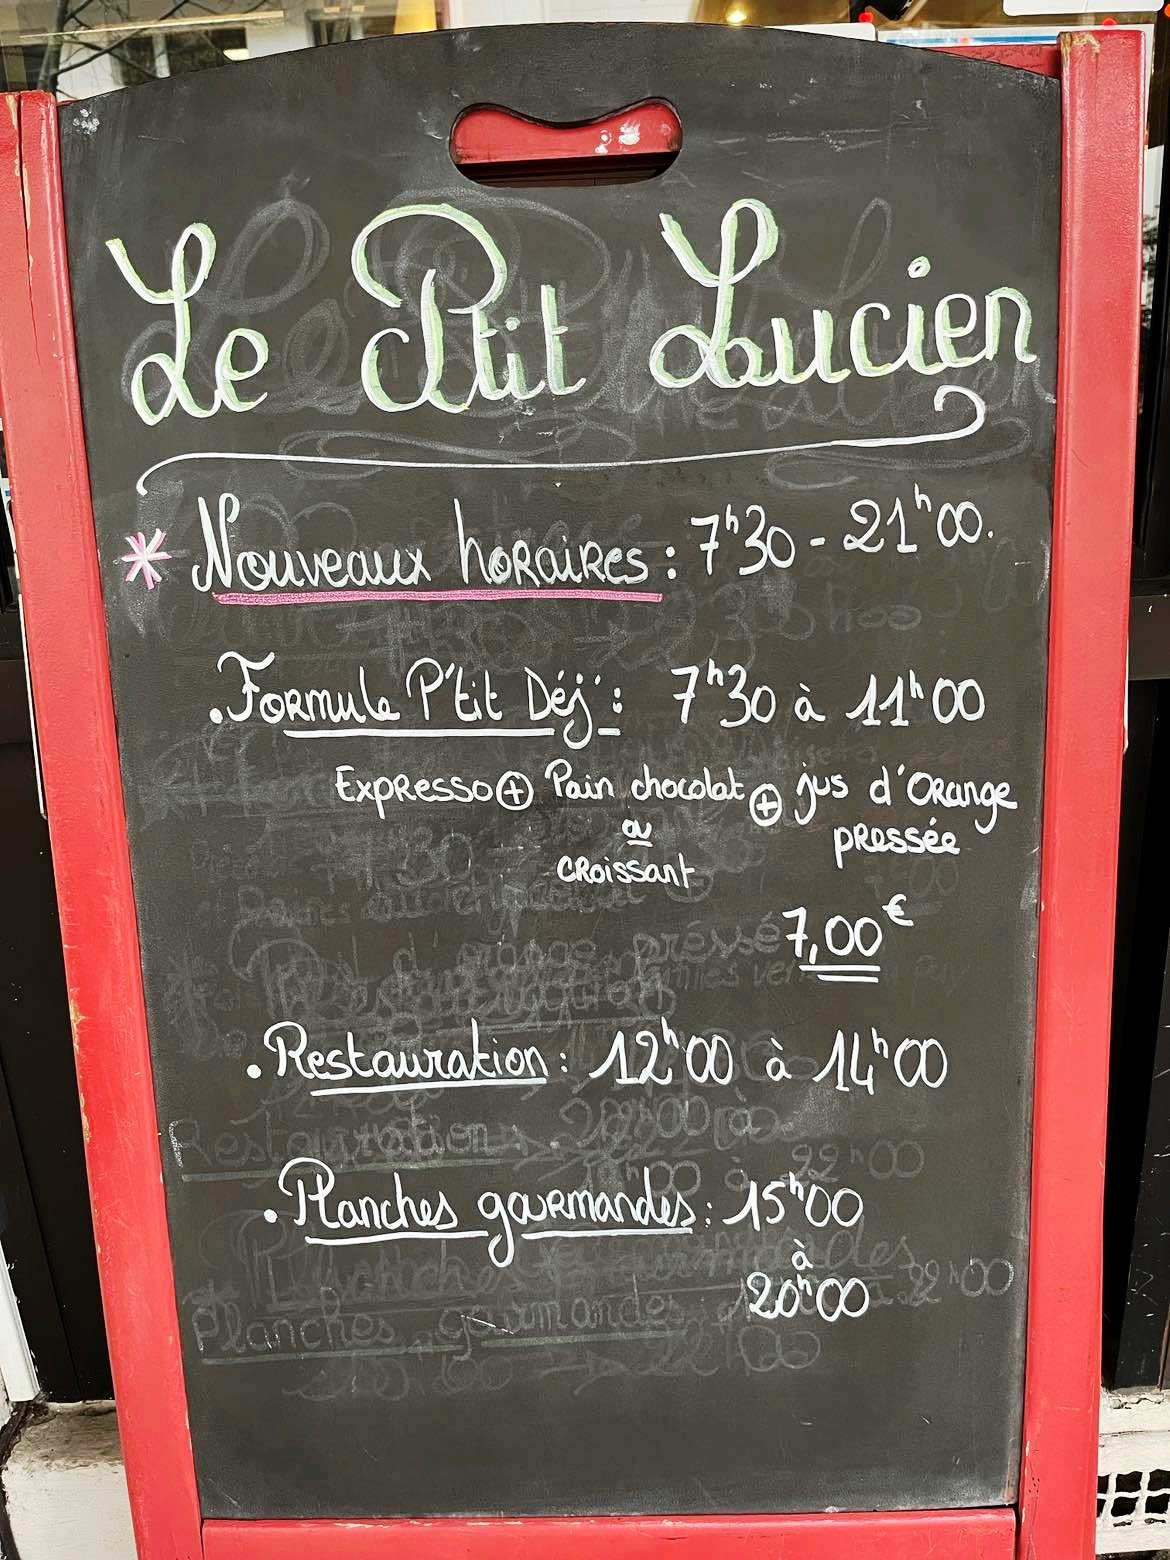 Le Ptit Lucien
* Nouveaux horaires : 7h30 - 21h00.
. Formule P'tit Déj' : 7h30 à 11h00
Expresso + Pain chocolat + jus d'orange
ou
pressée
croissant
7,00 €
. Restauration : 12h00 à 14h00
. Planches gourmandes : 15h00
à
20h00